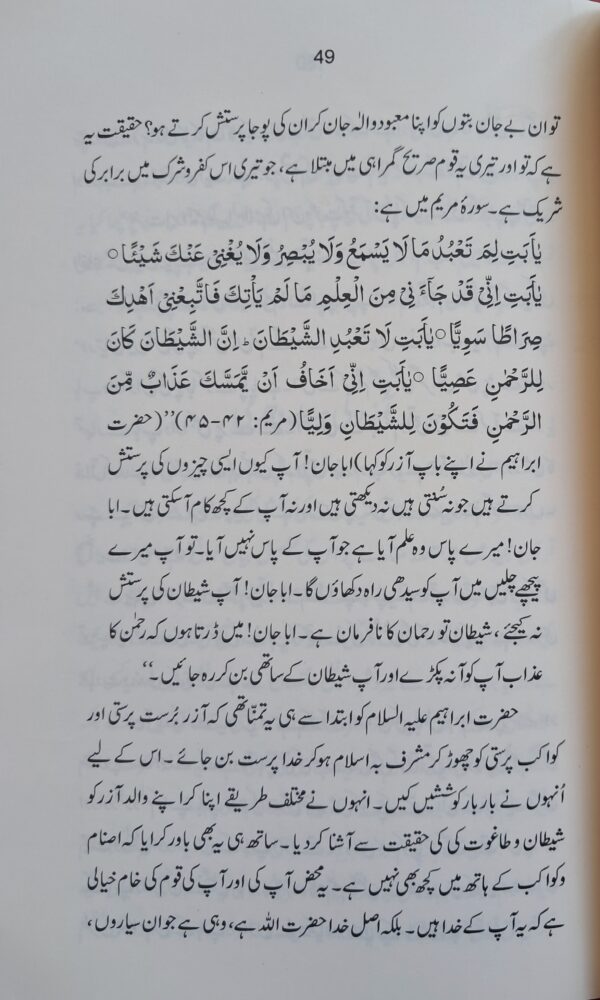 49
تو ان بے جان بتوں کو اپنا معبود و الٰہ جان کر ان کی پوجا پرستش کرتے ہو؟ حقیقت یہ
ہے کہ تو اور تیری یہ قوم صریح گمراہی میں مبتلا ہے، جو تیری اس کفر و شرک میں برابر کی
شریک ہے۔ سورۂ مریم میں ہے:
يٰأَبَتِ لِمَ تَعْبُدُ مَا لَا يَسْمَعُ وَلَا يُبْصِرُ وَلَا يُغْنِيْ عَنْكَ شَيْئًا○
يٰأَبَتِ اِنِّيْ قَدْ جَآءَ نِيْ مِنَ الْعِلْمِ مَا لَمْ يَأْتِكَ فَاتَّبِعْنِيْ اَهْدِكَ
صِرَاطًا سَوِيًّا○يٰأَبَتِ لَا تَعْبُدِ الشَّيْطَانَ ۔ اِنَّ الشَّيْطَانَ كَانَ
لِلرَّحْمٰنِ عَصِيًّا ○يٰأَبَتِ اِنِّيْ اَخَافُ اَنْ يَّمَسَّكَ عَذَابٌ مِّنَ
الرَّحْمٰنِ فَتَكُوْنَ لِلشَّيْطَانِ وَلِيًّا (مریم: ۴۲-۴۵)’’(حضرت
ابراہیم نے اپنے باپ آزر کو کہا) ابا جان! آپ کیوں ایسی چیزوں کی پرستش
کرتے ہیں جو نہ سُنتی ہیں نہ دیکھتی ہیں اور نہ آپ کے کچھ کام آسکتی ہیں۔ ابا
جان! میرے پاس وہ علم آیا ہے جو آپ کے پاس نہیں آیا۔ تو آپ میرے
پیچھے چلیں میں آپ کو سیدھی راہ دکھاؤں گا۔ ابا جان! آپ شیطان کی پرستش
نہ کیجئے، شیطان تو رحمان کا نافرمان ہے۔ ابا جان! میں ڈرتا ہوں کہ رحمٰن کا
عذاب آپ کو آنہ پکڑے اور آپ شیطان کے ساتھی بن کر رہ جائیں۔‘‘
حضرت ابراہیم علیہ السلام کو ابتدا سے ہی یہ تمنّا تھی کہ آزر بُرست پرستی اور
کواکب پرستی کو چھوڑ کر مشرف بہ اسلام ہو کر خدا پرست بن جائے۔ اس کے لیے
اُنہوں نے بار بار کوششیں کیں۔ انہوں نے مختلف طریقے اپنا کر اپنے والد آزر کو
شیطان و طاغوت کی کی حقیقت سے آشنا کر دیا۔ ساتھ ہی یہ بھی باور کرایا کہ اصنام
و کواکب کے ہاتھ میں کچھ بھی نہیں ہے۔ یہ محض آپ کی اور آپ کی قوم کی خام خیالی
ہے کہ یہ آپ کے خدا ہیں۔ بلکہ اصل خدا حضرت اللہ ہے، وہی ہے جو ان سیاروں،